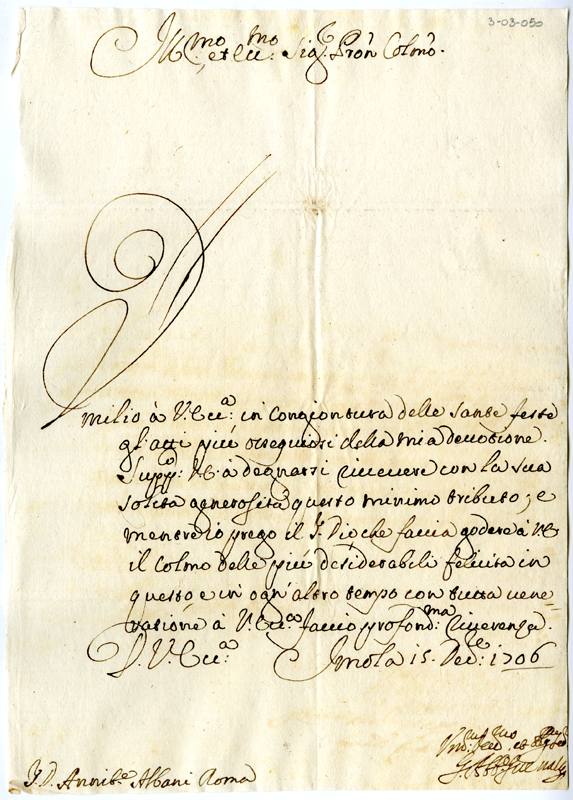 3-03-050
Ill.mo et Ecc.mo Sig.r Pron Colmo.
Umilio à V. Ecc.a in congiontura delle sante feste
gl'atti più ossequiosi della mia devotione.
Supp.co V.E. à degnarsi ricevere con la sua
solita generosità questo minimo tributo; e
mentre io prego il S. Dio che faccia godere à V.E.
il colmo delle più desiderabili felicità in
questo e in ogn'altro tempo con tutta vene=
ratione à V. Ecc.a faccio profond.ma riverenza.
D. V. Ecc.a Imola 15. Dec.e 1706
S.D. Annib.e Albani Roma